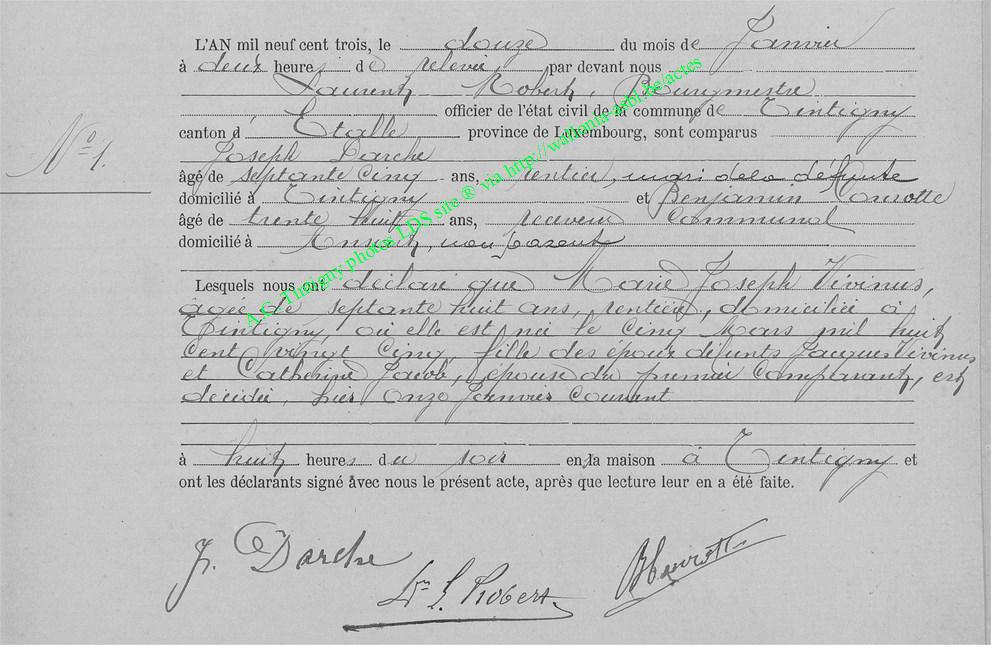 L'AN mil neuf cent trois, le douze du mois de Janvier
à deux heures de relevée, par devant nous
Laurent Robert, Bourgmestre
officier de l'état civil de la commune de Tintigny
canton d'Etalle province de Luxembourg, sont comparus
Joseph Darche
âgé de septante cinq ans, rentier, mari de la défunte
domicilié à Tintigny et Benjamin
âgé de trente huit ans, receveur Communal
domicilié à Ansart, non parent
N° 1.
Lesquels nous ont déclaré que Marie Joseph Vivinus,
agée de septante huit ans, rentière, domiciliée à
Tintigny, où elle est née le Cinq Mars mil huit
Cent vingt Cinq, fille des époux défunts Jacques Vivinus
et Catherine Jacob, épouse du premier Comparant, est
décédée, hier onze Janvier Courant
à huit heures du soir en sa maison à Tintigny et
ont les déclarants signé avec nous le présent acte, après que lecture leur en a été faite.
J. Darche
Dr L. Robert
A.C. Tintigny photos LDS site ® via http://wallonia-asbl.be/actes